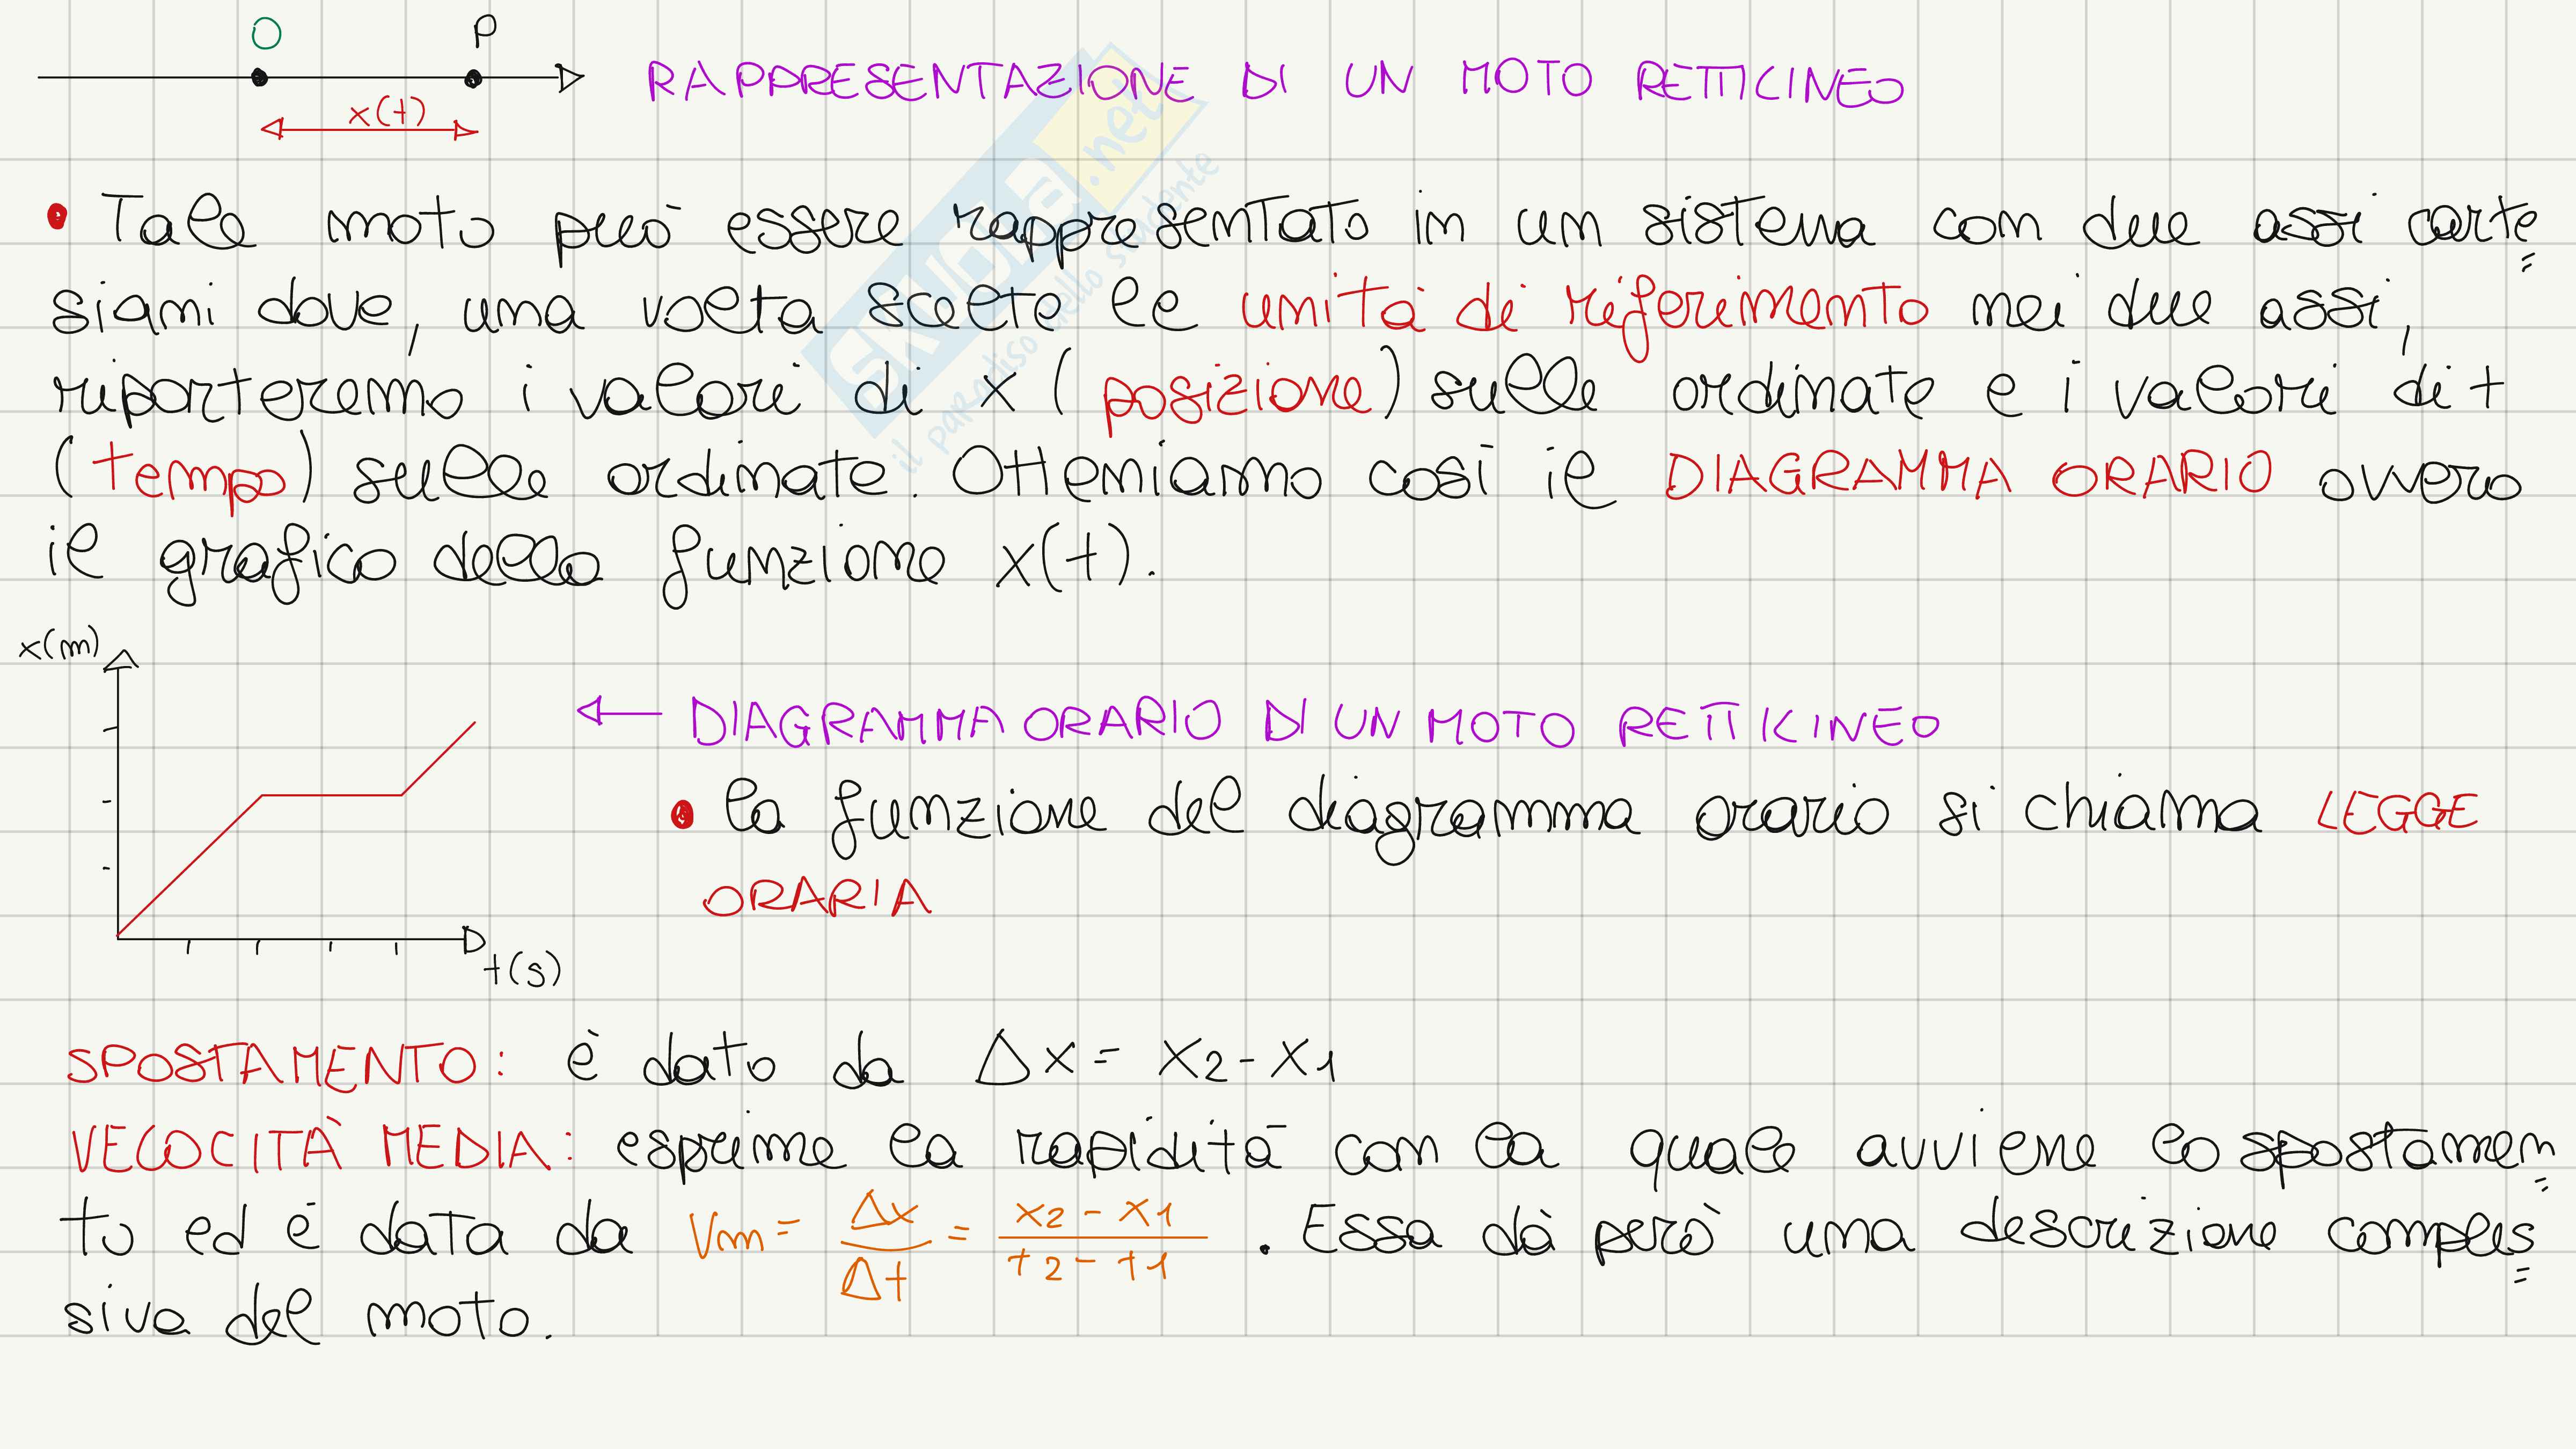 O P
x(t)
RAPPRESENTAZIONE DI UN MOTO RETTILINEO
• Tale moto può essere rappresentato in un sistema con due assi carte
siani dove, una volta scelte le unità di riferimento nei due assi,
riporteremo i valori di x (posizione) sulle ordinate e i valori di t
(tempo) sulle ordinate. Otteniamo così il DIAGRAMMA ORARIO ovvero
il grafico della funzione x(t).
skuola.net
il paradiso dello studente
x(m)
← DIAGRAMMA ORARIO DI UN MOTO RETTILINEO
• la funzione del diagramma orario si chiama LEGGE
ORARIA
t(s)
SPOSTAMENTO: è dato da Δx = x2 - x1
VELOCITÀ MEDIA: esprime la rapidità con la quale avviene lo spostamen
to ed è data da Vm = Δx/Δt = x2 - x1/t2 - t1 . Essa dà però una descrizione comples
siva del moto.